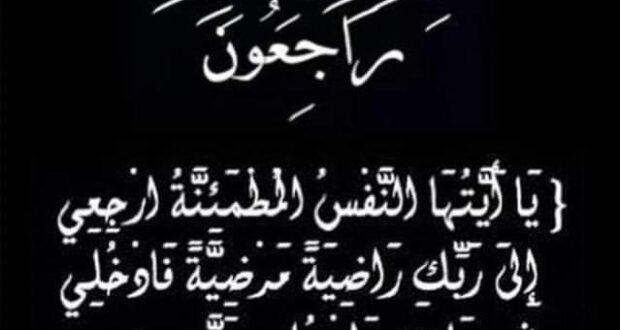 رَاجِعُونَ
{ يَا أَيَّتُهَا النَّفْسُ الْمُطْمَئِنَّةُ ارْجِعِي
إِلَى رَبِّكِ رَاضِيَةً مَرْضِيَّةً فَادْخُلِي